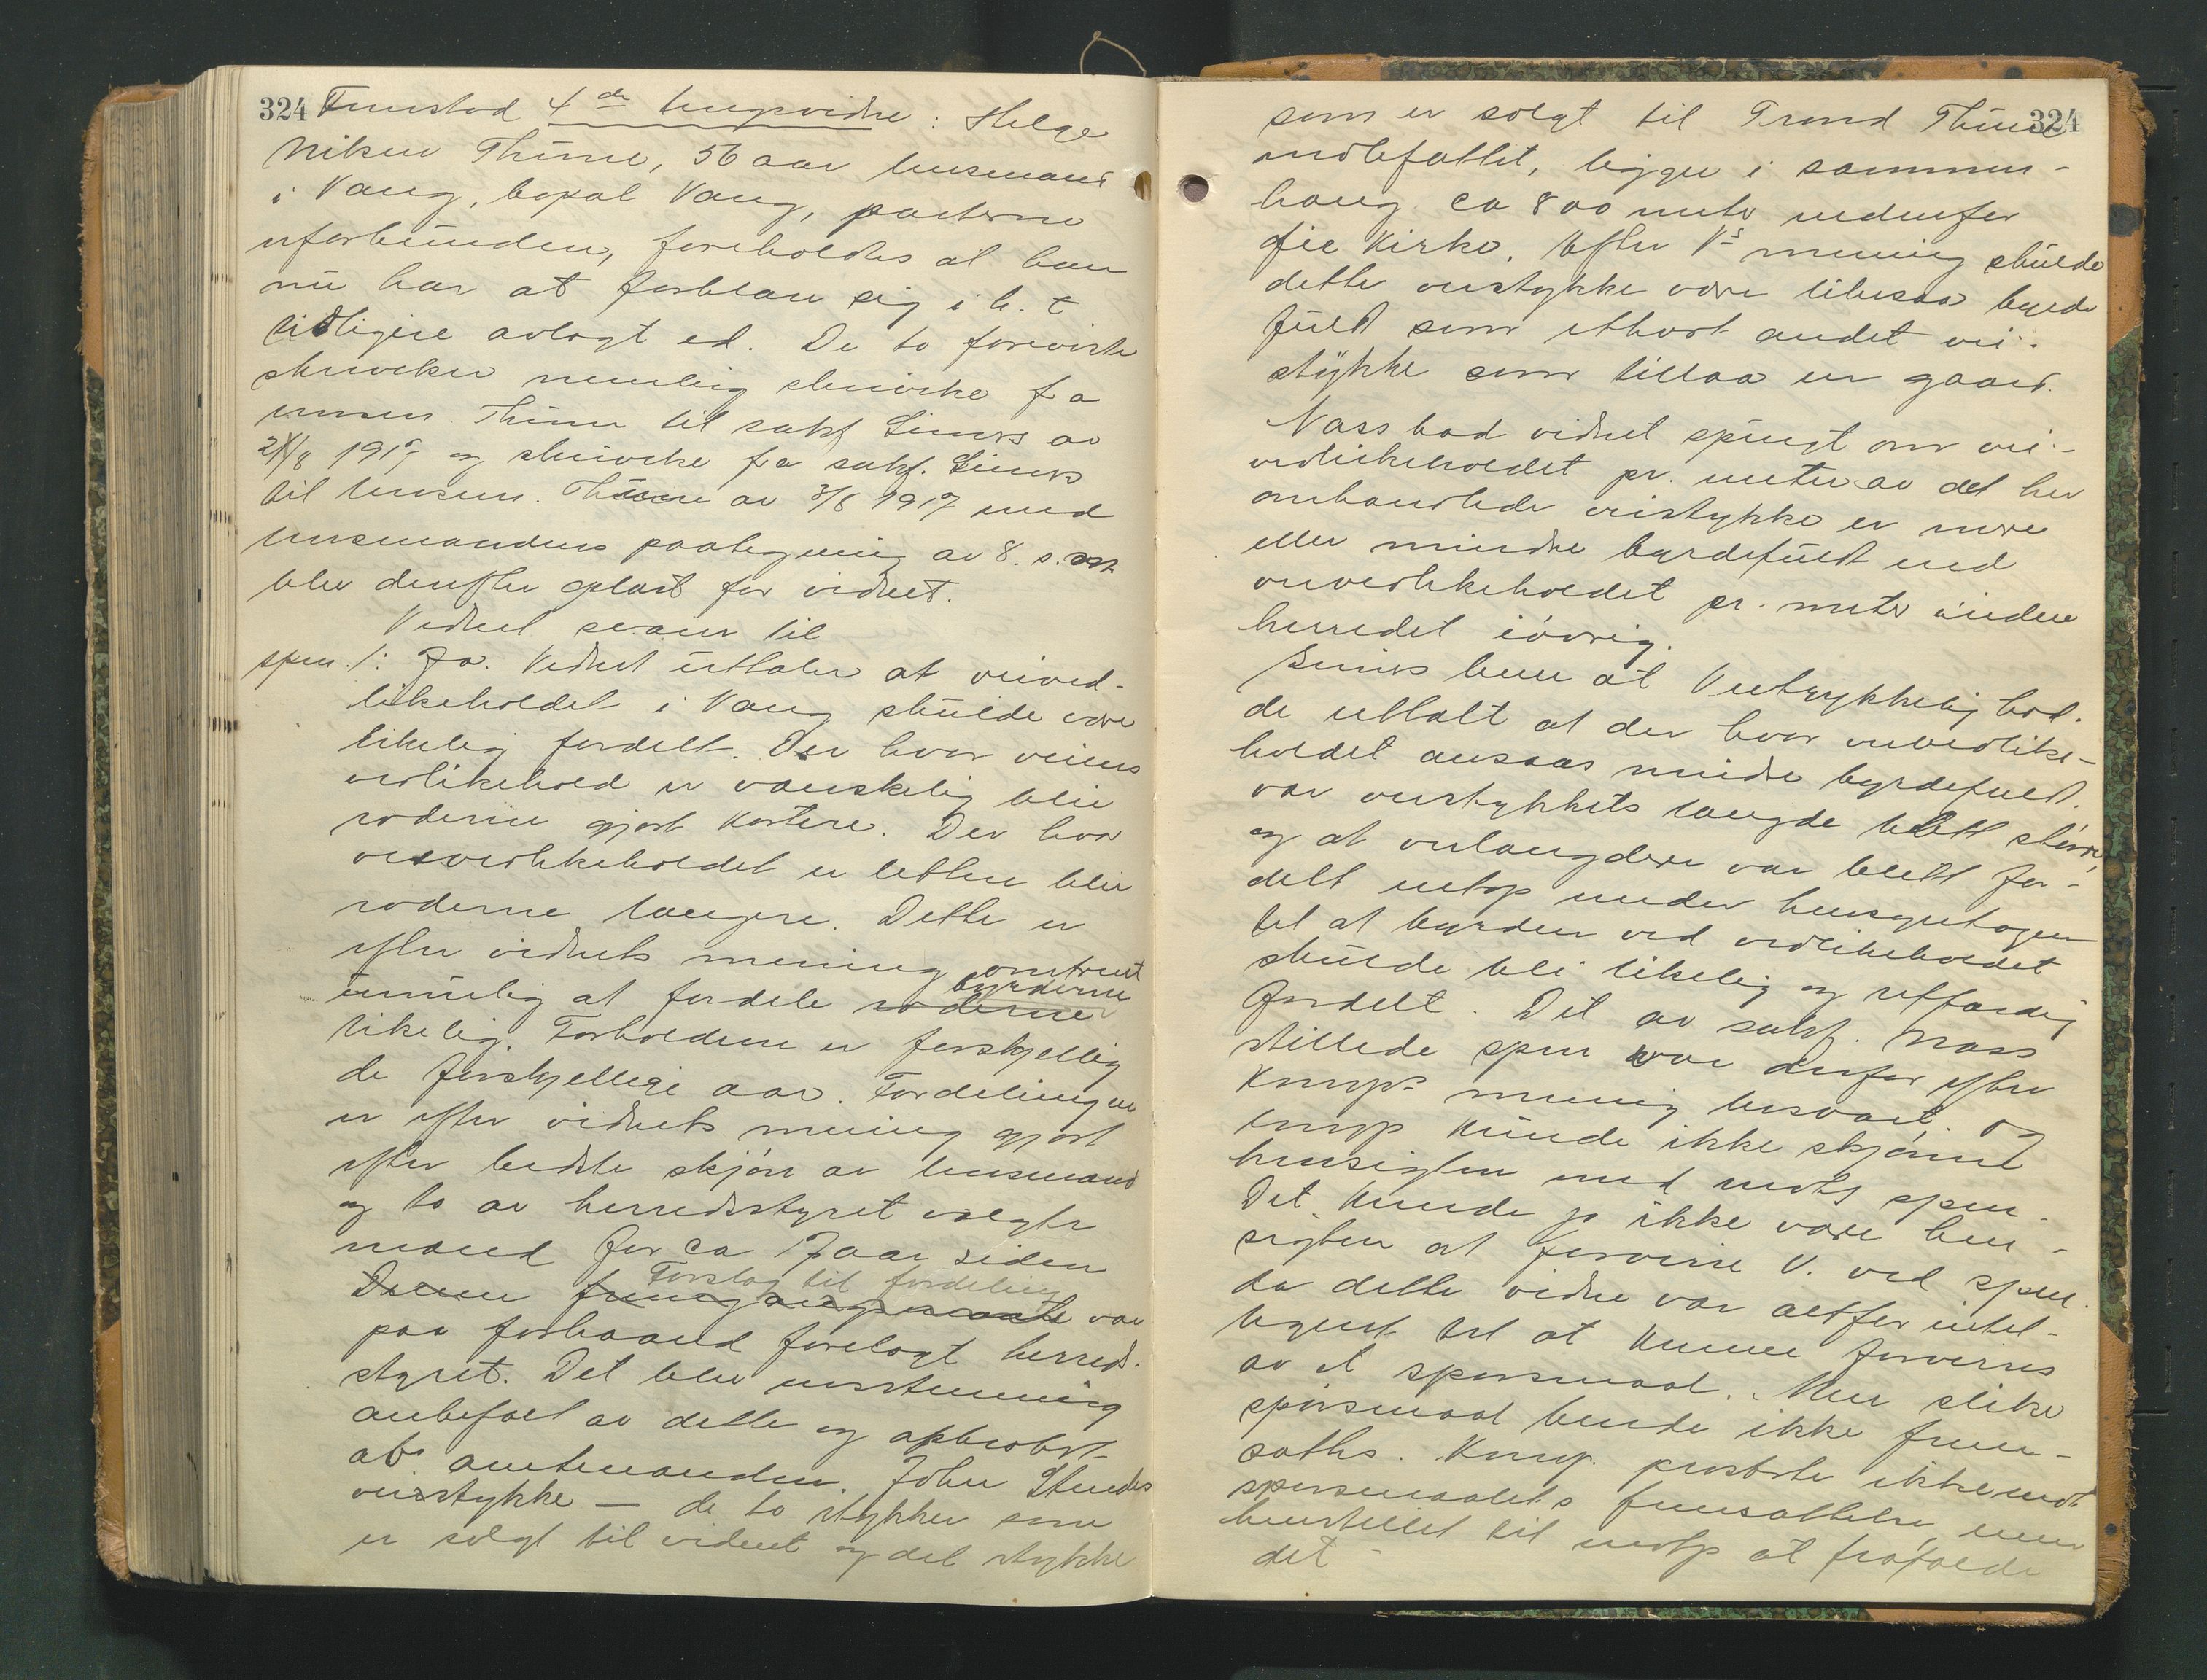 324 Fremstod 4de kmpsvidne: Helge
Nilsen Thune, 56 aar lensmand
i Vang, bopæl Vang, parterne
uforbunden, foreholdes at han
nu har at forklare sig i h. t
tidligere avlagt ed. De to foreviste
skrivelser nemlig skrivelse fra
lensm. Thune til sakf. Siewers av
1917 og skrivelse fra sakf. Siewers
til lensm. Thune av 3/8 1917 med
lensmandens paategning av 8. s. m.
blev derefter oplæst for vidnet.
Vidnet svarer til
spm. 1: Ja. Vidnet uttaler at veived-
likeholdet i Vang skulde være
likelig fordelt. Der hvor veiens
vedlikehold er vanskelig blir
roderne gjort kortere. Der hvor
veivedlikeholdet er lettere blir
roderne længere. Dette er
efter vidnets mening omtrent
umulig at fordele roderne byrderne
likelig. Forholdene er forskjellig
de forskjellige aar. Fordelingen
er efter vidnets mening gjort
efter bedste skjøn av lensmand
og to av herredsstyret valgte
mænd for ca 17 aar siden
Denne fremgangsmaate Forslag til fordeling var
paa forhaand forelagt herreds-
styret. Det blev enstemmig
anbefalt av dette og approbert
av amtmanden. John Stende's
veistykke - de to stykker som
er solgt til vidnet og det stykke
324
som er solgt til Trond Thune
indbefattet, ligger i sammen-
hæng ca 800 meter nedenfor
Øie kirke. Efter V's mening skulde
dette veistykke være likesaa byrde
fuld som ethvert andet vei-
stykke som tillaa en gaard.
Nass bad vidnet spurgt om vei-
vedlikeholdet pr. meter av det her
omhandlede veistykke er mere
eller mindre byrdefuldt end
veivedlikeholdet pr. meter inden
herredet iøvrig.
Siewers bem at V uttrykkelig had-
de uttalt at der hvor veivedlike-
holdet ansaaes mindre byrdefuldt.
var veistykkets længde blitt større,
og at veilængdene var blitt for-
delt netop under hensyntagen
til at byrden ved vedlikeholdet
skulde bli likelig og retfærdig
fordelt. Det av sakf. Nass
stillede spm var derfor efter
kmps mening besvart. Og
kmp kunde ikke skjønne
hensigten med motp spm.
Det kunde jo ikke være hen-
sigten at forvirre V. ved spm.
da dette vidne var altfor intel-
ligent til at kunne forvirres
av et spørsmaal. Men slike
spørsmaal burde ikke frem-
sættes. Kmp. protsterte ikke mot
spørsmaalets fremsættelse, men
henstillet til motp at frafalde
det -